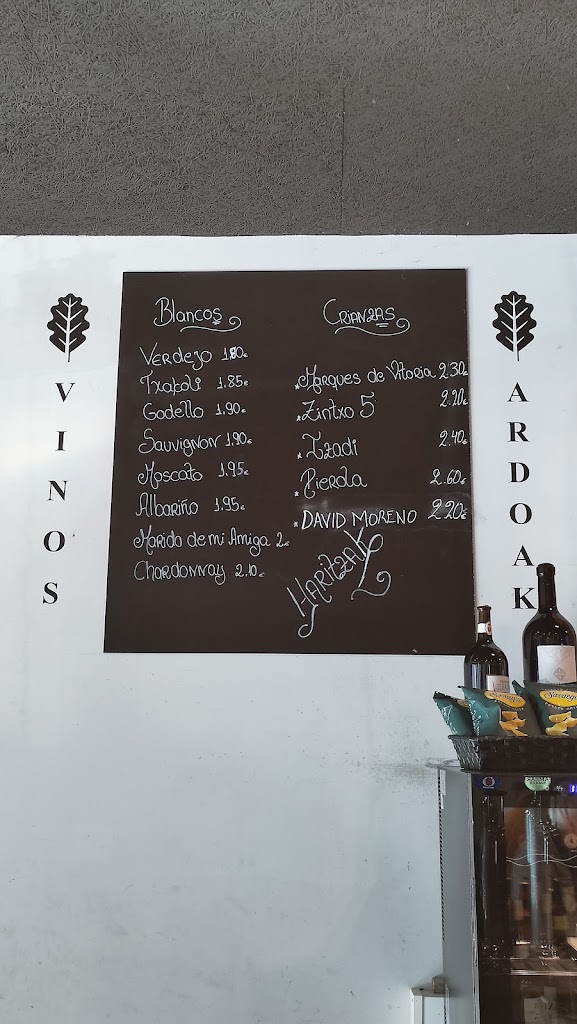 VINOS
Blancos
Verdejo 1.80€
Txakoli 1.85€
Godello 1.90€
Sauvignon 1.90€
Moscato 1.95€
Albariño 1.95€
Marido de mi Amiga 2€
Chardonnay 2.10€
Crianzas
*Marques de Vitoria 2.30€
*Zintxo 5 2.20€
*Izadi 2.40€
*Pierola 2.60€
*DAVID MORENO 2.20€
HARITZAK
ARDOAK